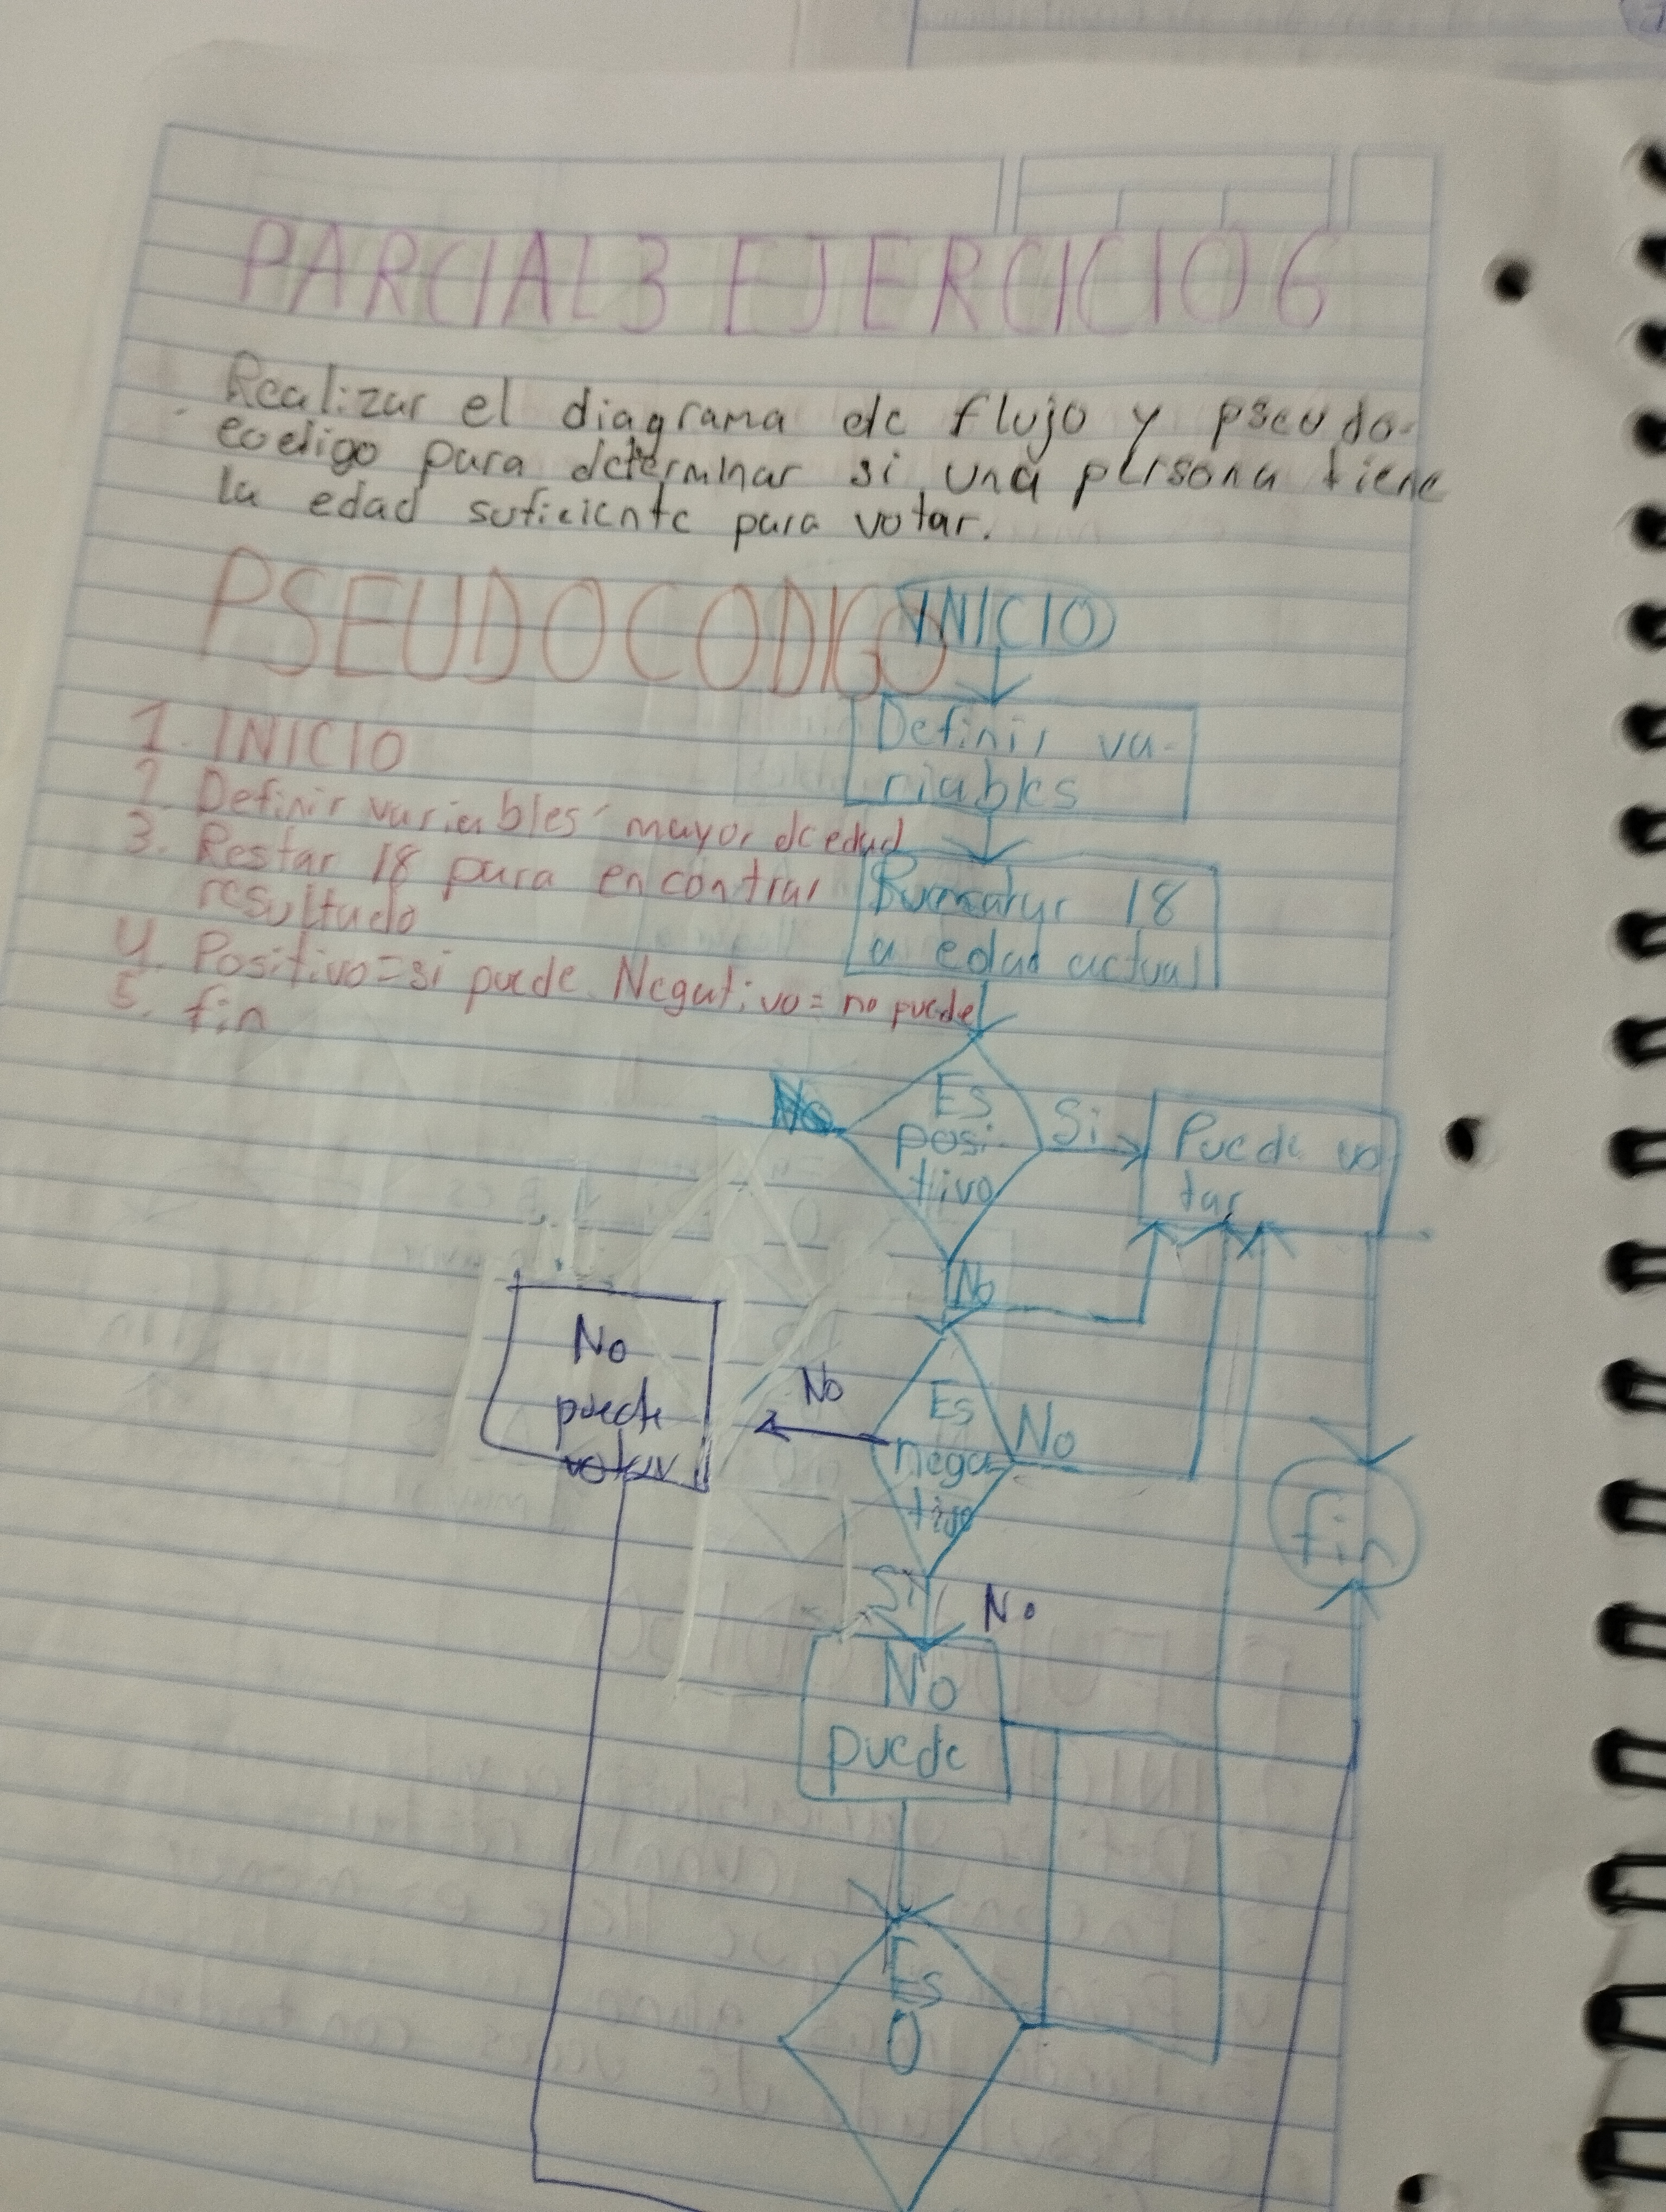 PARCIAL 3 EJERCICIO 6
Realizar el diagrama de flujo y pseudo-
codigo para determinar si una persona tiene
la edad suficiente para votar.
PSEUDOCODIGO
1. INICIO
2. Definir variables mayor de edad
3. Restar 18 para encontrar
resultado
4. Positivo=si puede Negativo= no puede
5. fin
INICIO
Definir va-
riables
18
a edad actual
Es
posi-
tivo
Si
Puede vo
tar
No
No
Es
nega-
tivo
No
No
No
puede
votar
Si
No
No
puede
fin
Es
0